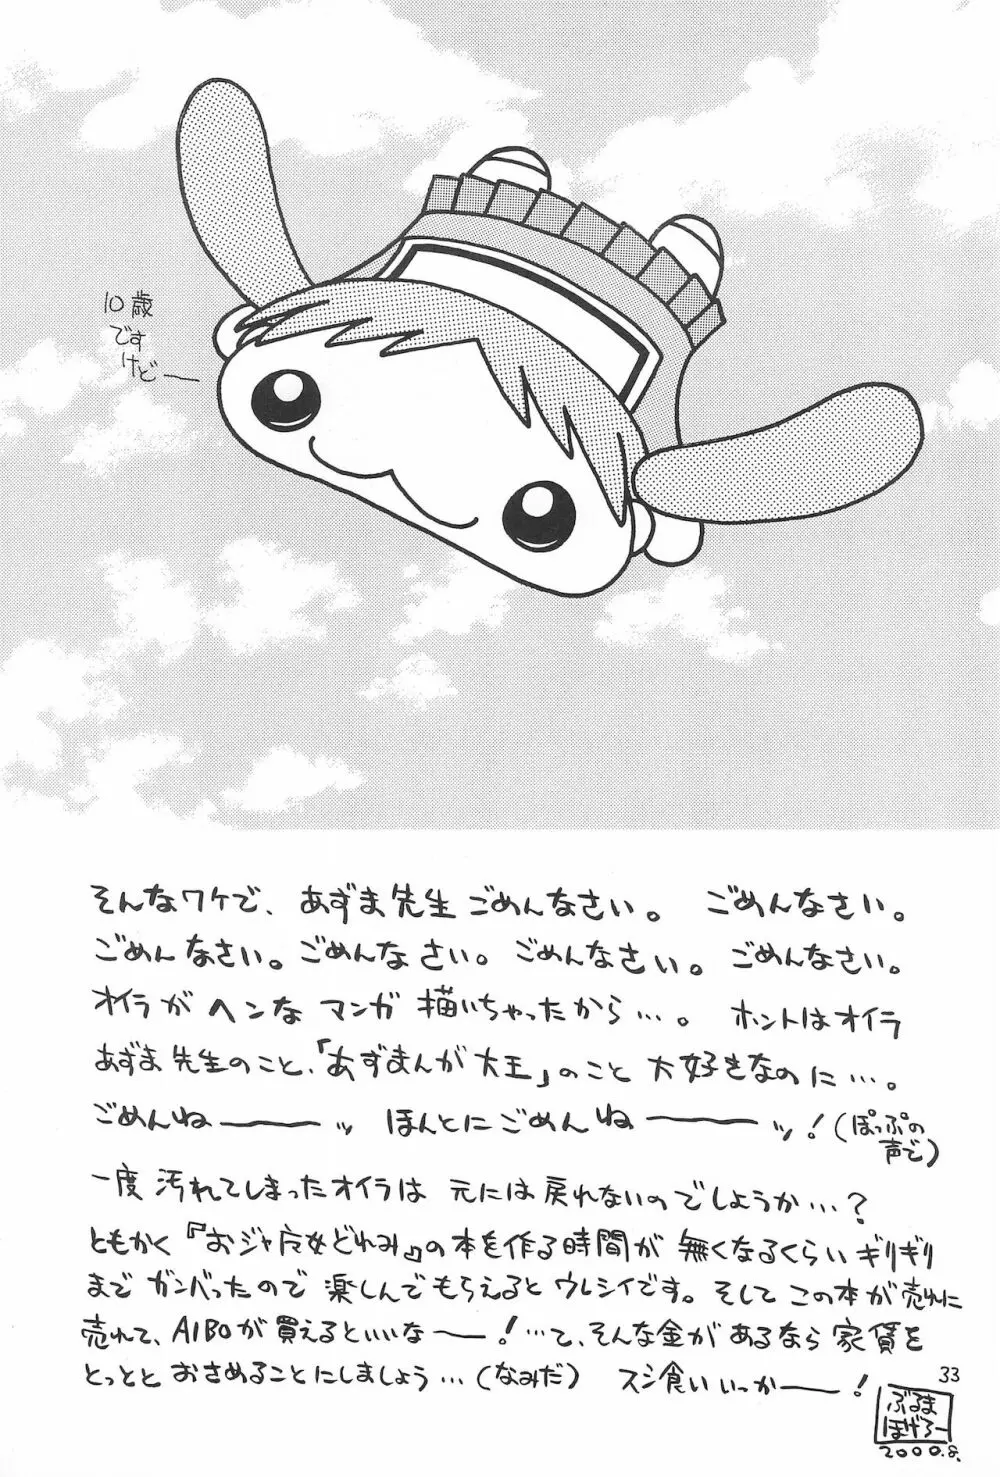 10歳
ですけど──
そんなワケで、あずま先生ごめんなさい。 ごめんなさい。
ごめんなさい。ごめんなさい。ごめんなさい。ごめんなさい。
オイラがヘンなマンガ描いちゃったから…。 ホントはオイラ
あずま先生のこと、「あずまんが大王」のこと 大好きなのに…。
ごめんね───ッ ほんとにごめんね───ッ!(ぽっぷの声で)
一度汚れてしまったオイラは 元には戻れないのでしょうか…?
ともかく『おジャ魔女どれみ』の本を作る時間が 無くなるくらいギリギリ
まで ガンバったので 楽しんでもらえるとウレシイです。そして この本が売れに
売れて、AIBOが買えるといいな──!…て、そんな金が あるなら 家賃を
とっとと おさめることにしましょう…(なみだ) スシ食いいっか──!
33
ぶるま
ほげろー
2000.8.